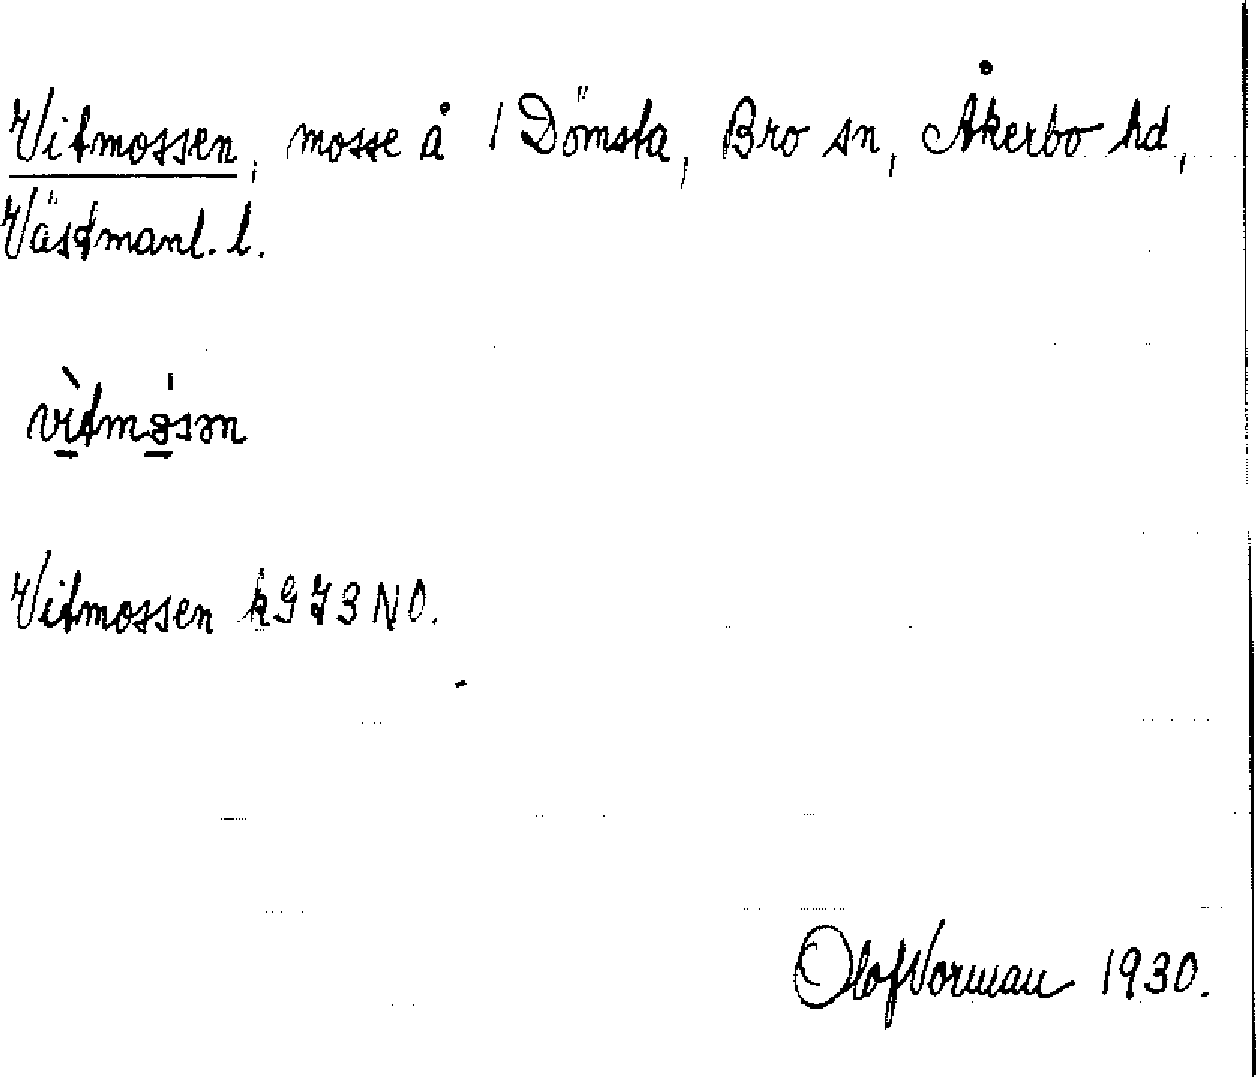 Vitmossen, mosse å 1 Dömsta, Bro sn, Åkerbo hd,
Västmanl. l.
vìtmɵ̀sən
Vitmossen k973 NO.
Olof Norman 1930.